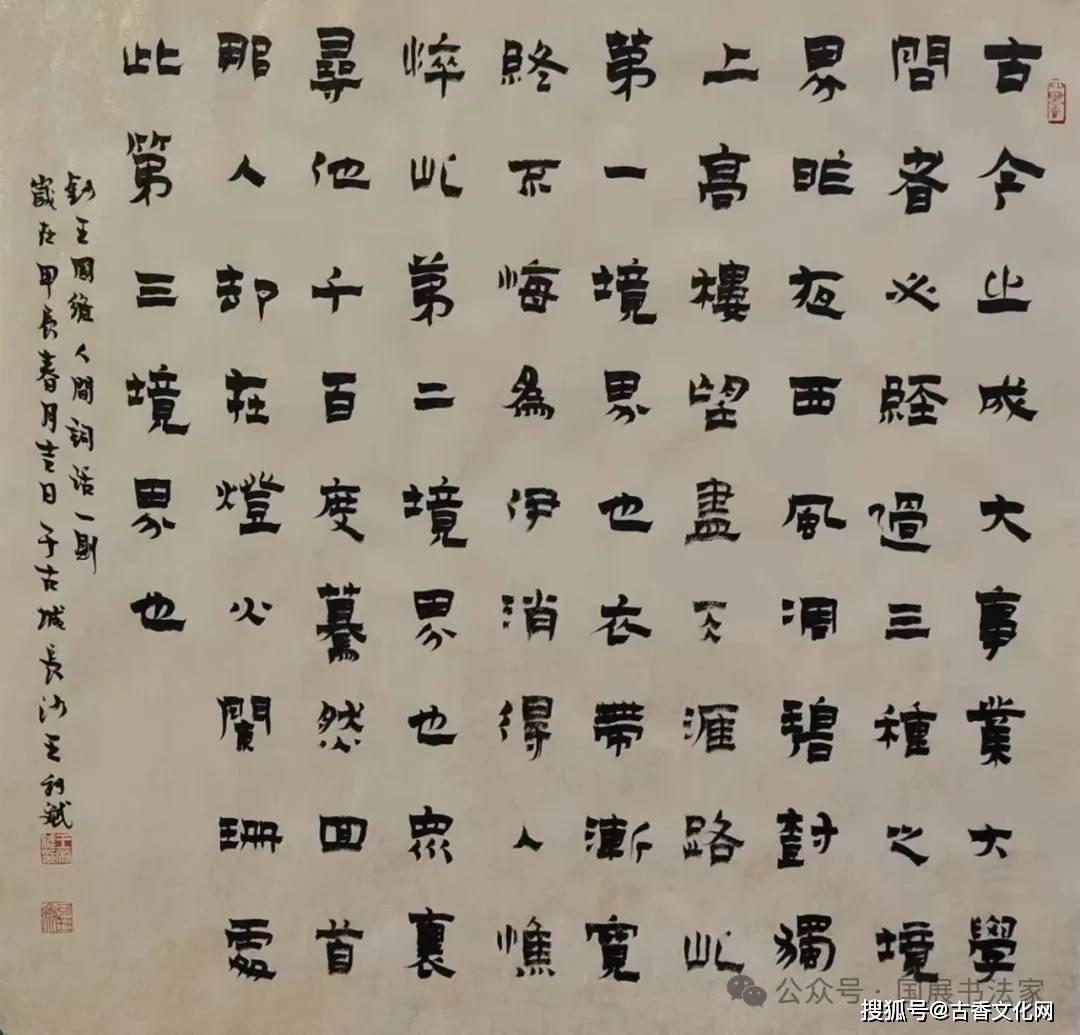 古今之成大事業大學
問者必經過三種之境
界昨夜西風凋碧樹獨
上高樓望盡天涯路此
第一境界也衣帶漸寬
終不悔為伊消得人憔
悴此第二境界也眾裏
尋他千百度驀然回首
那人却在燈火闌珊處
此第三境界也
錄王國維人間詞話一則
歲在甲辰春月吉日于古城長沙王利斌
公众号·国展书法家
搜狐号@古香文化网